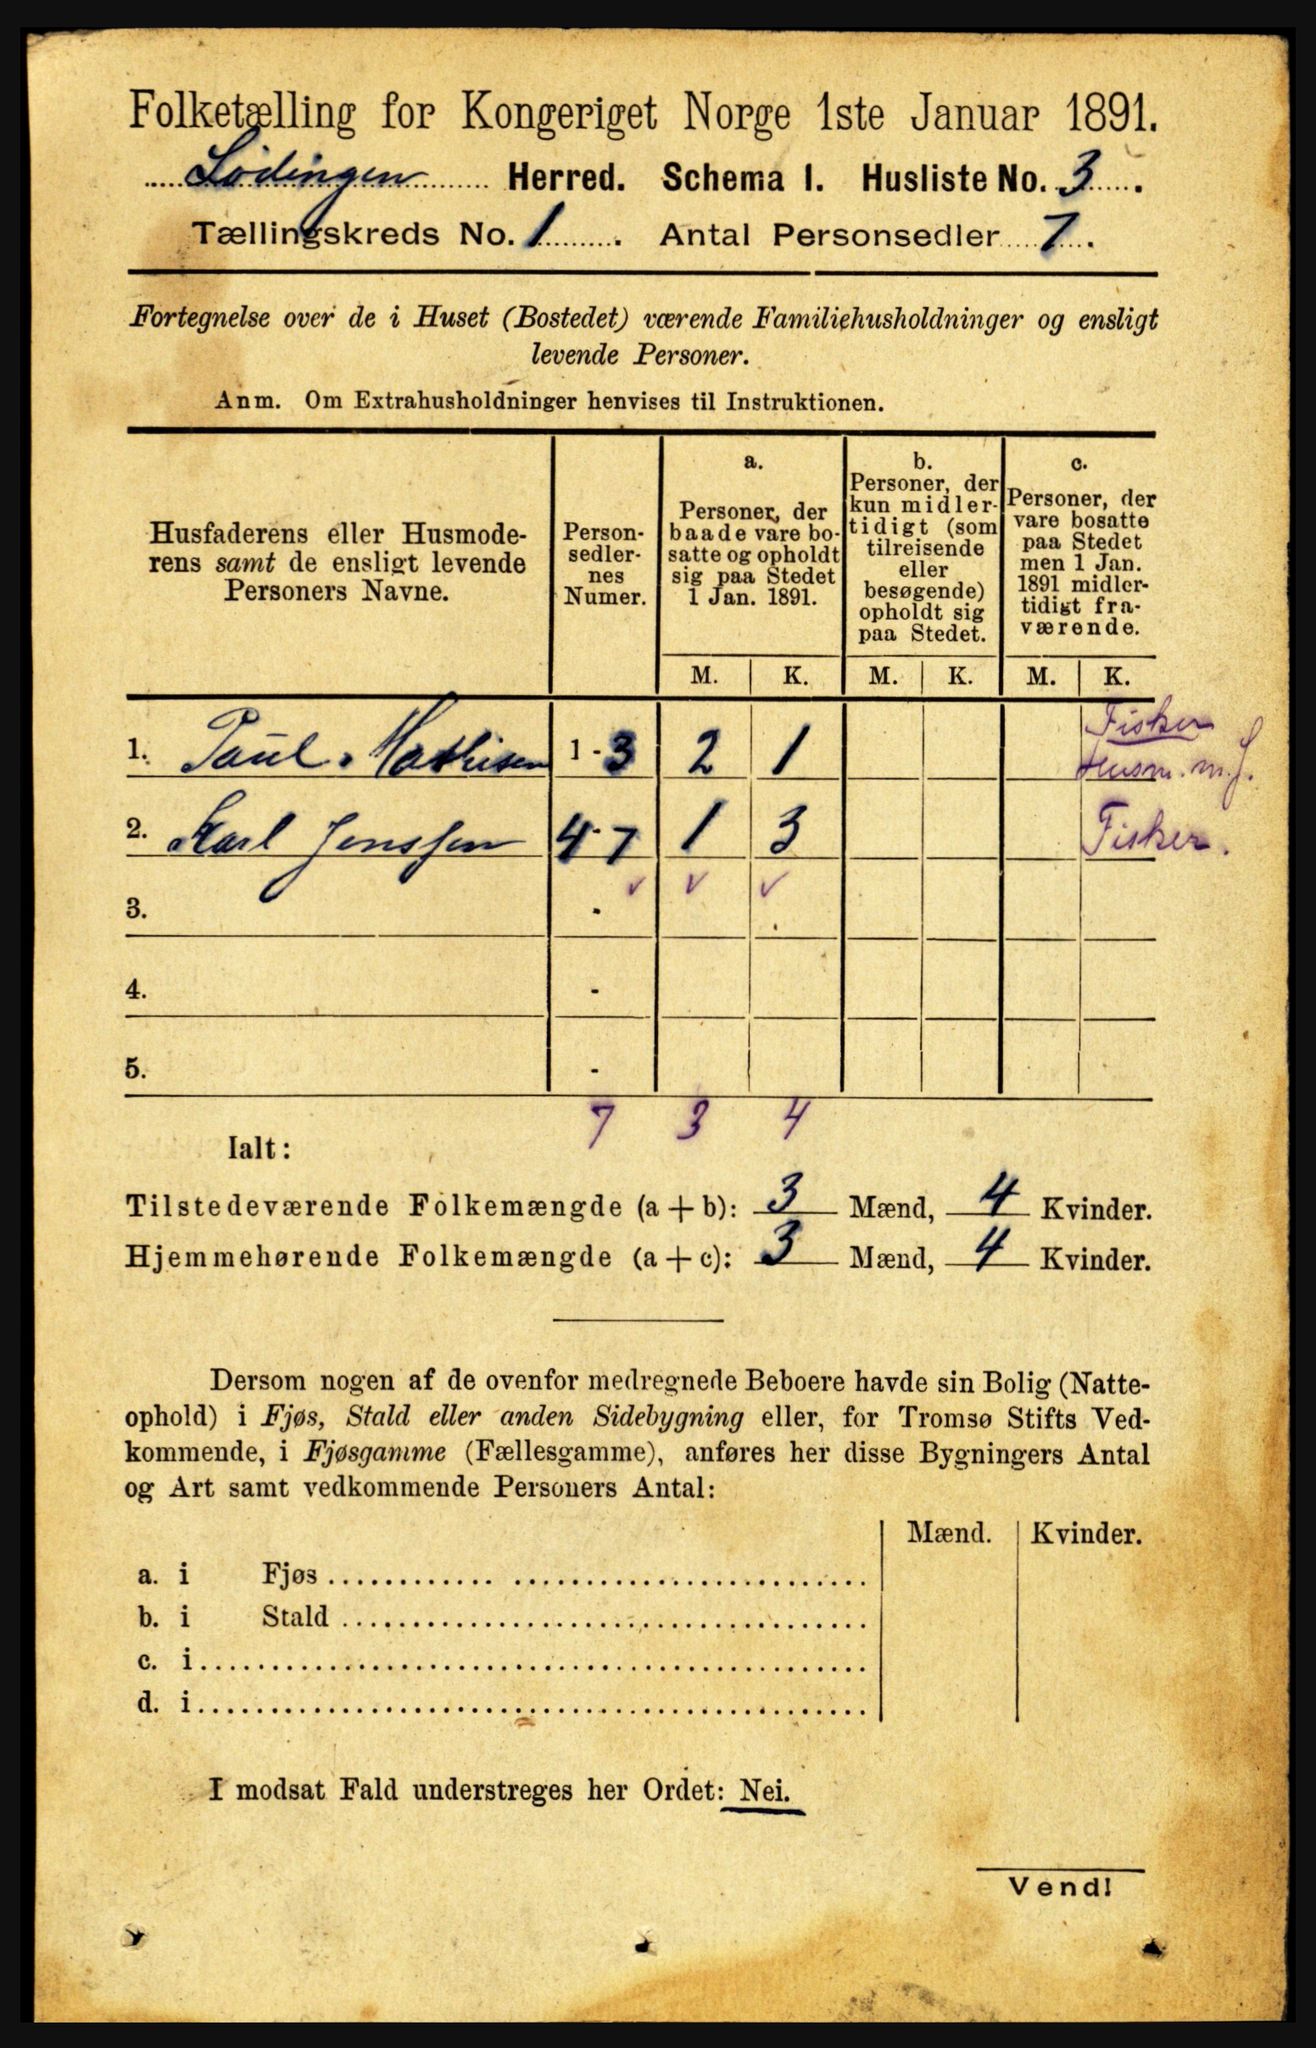 Folketælling for Kongeriget Norge 1ste Januar 1891.
Lødingen Herred. Schema I. Husliste No. 3.
Tællingskreds No. 1. Antal Personsedler 7.
Fortegnelse over de i Huset (Bostedet) værende Familiehusholdninger og ensligt
levende Personer.
Anm. Om Extrahusholdninger henvises til Instruktionen.
Husfaderens eller Husmode-
rens samt de ensligt levende
Personers Navne.
Person-
sedler-
nes
Numer.
a.
Personer, der
baade vare bo-
satte og opholdt
sig paa Stedet
1 Jan. 1891.
b.
Personer, der
kun midler-
tidigt (som
tilreisende
eller
besøgende)
opholdt sig
paa Stedet.
c.
Personer, der
vare bosatte
paa Stedet
men 1 Jan.
1891 midler-
tidigt fra-
værende.
M. K. M. K. M. K.
1. Paul Mathisen 1-3 2 1 Fisker
Husm. m. J.
2. Karl Jenssen 4-7 1 3 Fisker.
✓ ✓ ✓
3. -
4. -
5. -
7 3 4
Ialt:
Tilstedeværende Folkemængde (a + b): 3 Mænd, 4 Kvinder.
Hjemmehørende Folkemængde (a + c): 3 Mænd, 4 Kvinder.
Dersom nogen af de ovenfor medregnede Beboere havde sin Bolig (Natte-
ophold) i Fjøs, Stald eller anden Sidebygning eller, for Tromsø Stifts Ved-
kommende, i Fjøsgamme (Fællesgamme), anføres her disse Bygningers Antal
og Art samt vedkommende Personers Antal:
Mænd. Kvinder.
a. i Fjøs
b. i Stald
c. i
d. i
I modsat Fald understreges her Ordet: Nei.
Vend!